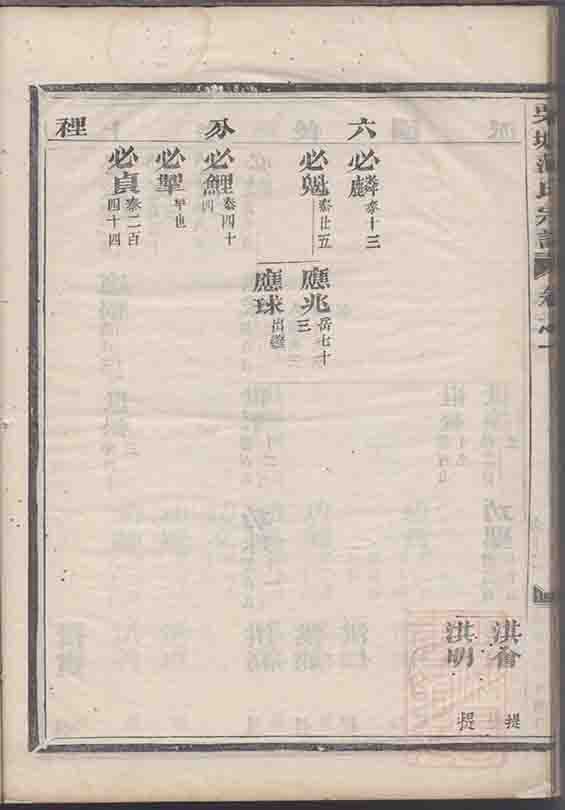 宗譜
卷之一
淇會 提
淇明 提
六
必麟 泰十三
必魁 泰廿五
應兆 岳七十三
應球 出繼
分
必鯉 泰四十四
必犟 早世
必貞 泰二百四十四
裡